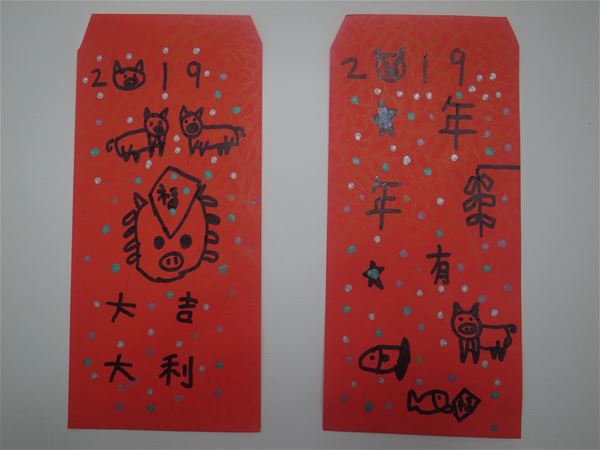 2019
福
大吉
大利
2019
年
年
有